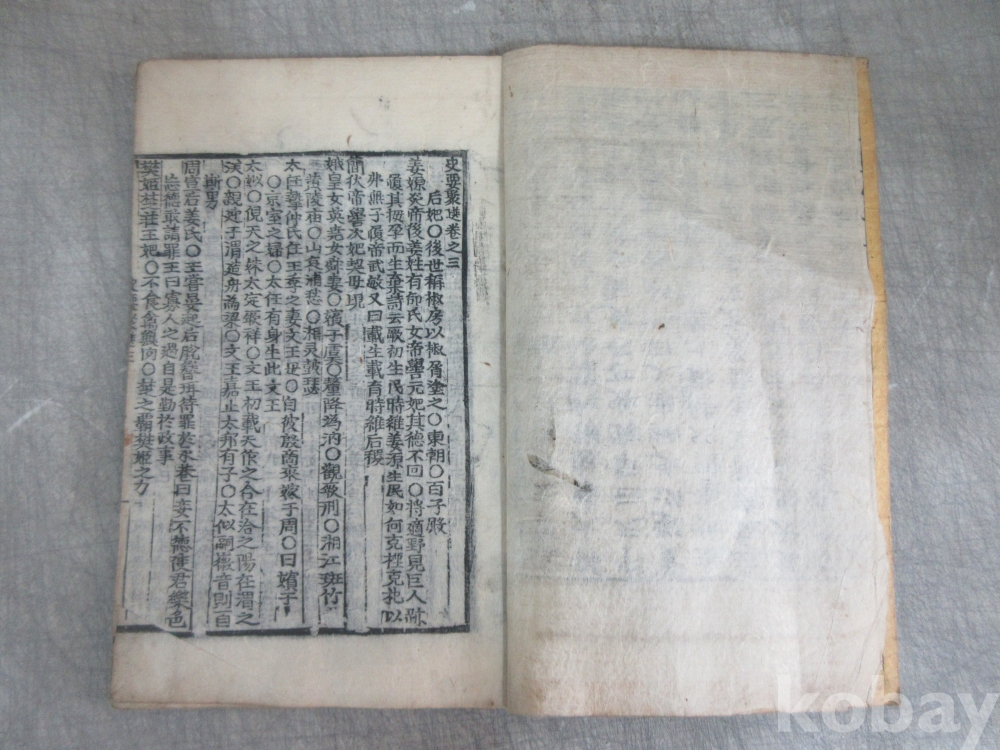 史要聚選卷之三
后妃〇後世稱椒房以椒屑塗之〇東朝〇百子殿
姜嫄炎帝後姜姓有邰氏女帝嚳元妃其德不回〇將適野見巨人跡
履其拇孕而生棄詩云厥初生民時維姜嫄生民如何克禋克祀以
弗無子履帝武敏又曰載生載育時維后稷
簡狄帝嚳次妃契母
娥皇女英堯女舜妻〇嬪于虞〇釐降嬀汭〇觀厥刑〇湘江斑竹
黃陵庙〇山哀浦愁〇湘灵鼓瑟
太任摯仲氏任王季之妻文王〇自彼殷商來嫁于周〇曰嬪于
〇京室之婦〇太任有身生此文王
太姒〇俔天之妹太定厥祥〇文王初載天作之合在洽之陽在渭之
涘〇親迎于渭造舟為梁〇文王嘉止太邦有子〇太姒嗣徽音則百
斯男
周宣后姜氏〇王嘗晏起后脫簪珥待罪於永巷曰妾不德使君樂色
忘德敢請罪王曰寡人之過自是勤於政事
樊姬楚莊王妃〇不食禽獸肉〇楚之霸樊姬之力
kobay